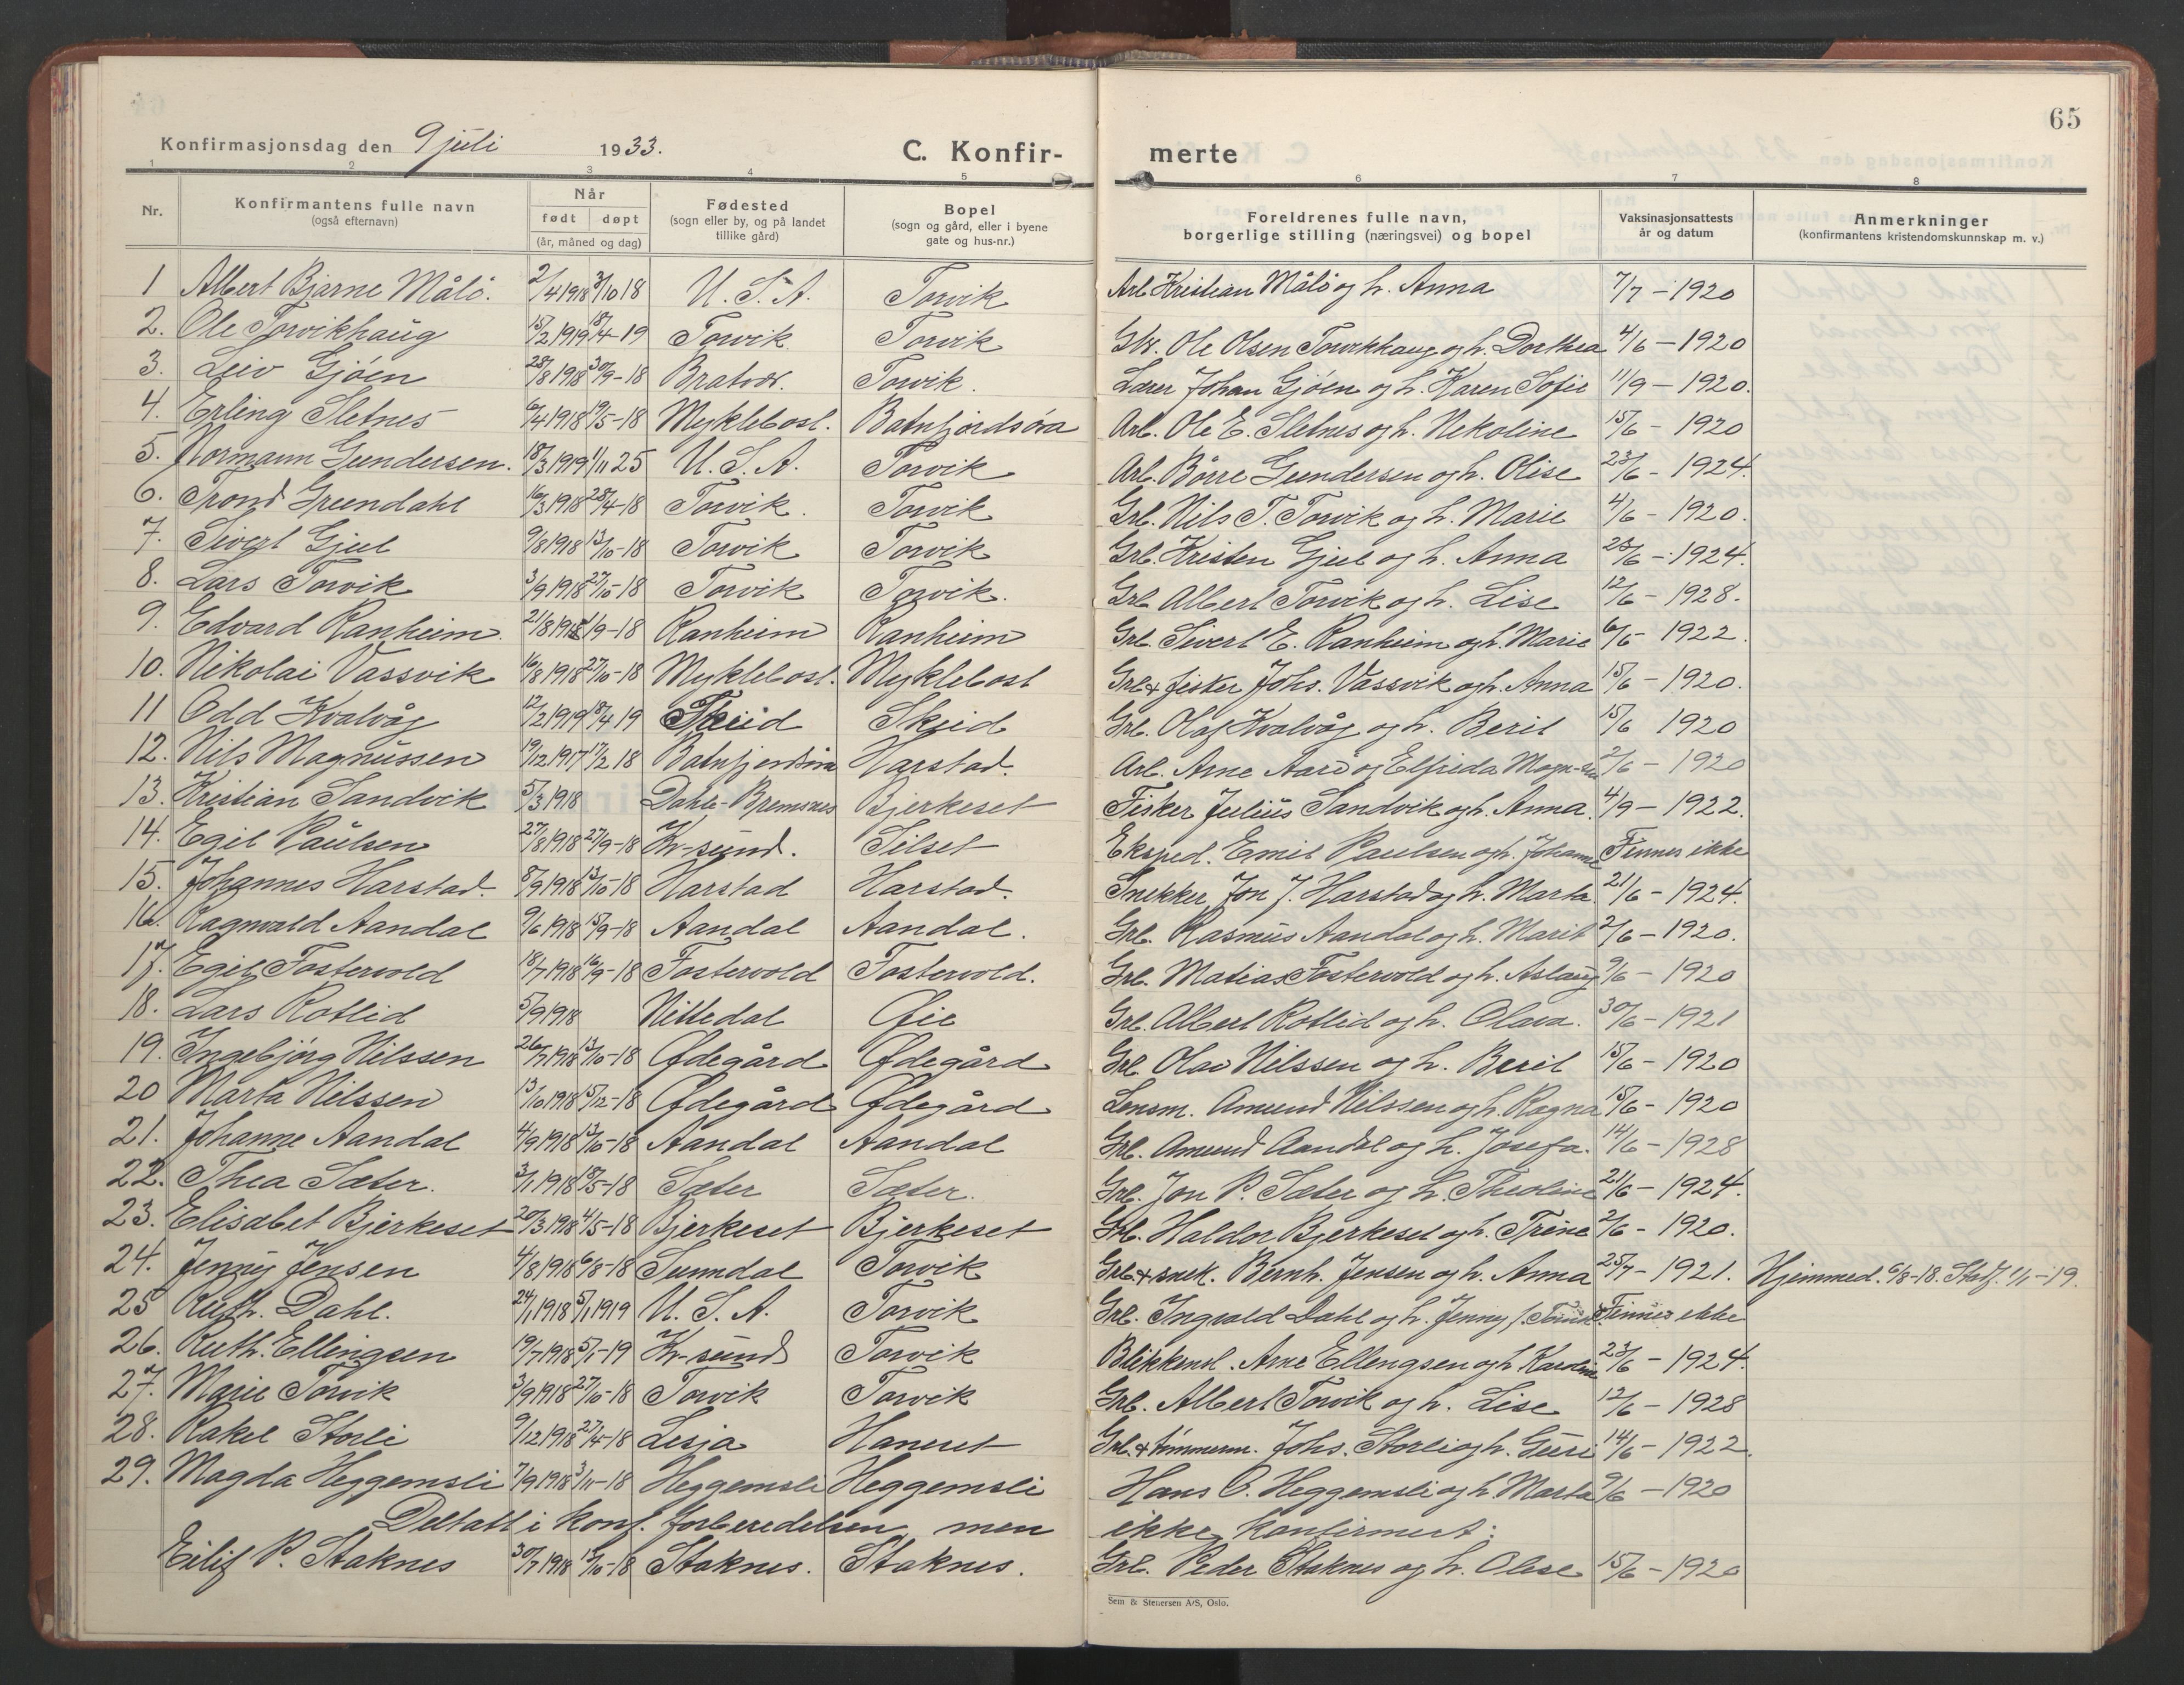 65
Konfirmasjonsdag den 9 juli 1933. C. Konfir- merte
1 2 3 4 5 6 7 8
Nr. Konfirmantens fulle navn (også efternavn) Når født døpt (år, måned og dag) Fødested (sogn eller by, og på landet tillike gård) Bopel (sogn og gård, eller i byene gate og hus-nr.) Foreldrenes fulle navn, borgerlige stilling (næringsvei) og bopel Vaksinasjonsattests år og datum Anmerkninger (konfirmantens kristendomskunnskap m. v.)
1 Albert Bjarne Målö. 2/4 1918 3/10 18 U. S. A. Torvik Arb. Kristian Målö og h. Anna 7/7 - 1920
2. Ole Torvikhaug 15/2 1919 18/4-19 Torvik Torvik Ole Olsen Torvikhaug og h. Dorthea 4/6 - 1920
3. Leiv Gjöen 28/8 1918 30/9-18 Bratvær. Torvik. Lærer Johan Gjöen og h. Karen Sofie 11/9 - 1920.
4. Erling Sletnes 6/4 1918 19/5-18 Myklebost. Batnfjordsöra Arb. Ole E. Sletnes og h. Nekoline 15/6 - 1920
5. Normann Gundersen. 18/3 1919 1/11 25 U. S. A. Torvik Arb. Börre Gundersen og h. Olise 23/6 - 1924.
6. Trond Grendahl 16/3 1918 28/4-18 Torvik. Torvik Grb. Nils T. Torvik og h. Marie 4/6 - 1920.
7. Sivert Gjul 9/8 1918 13/10-18 Torvik Torvik Grb. Kristen Gjul og h. Anna 23/6 - 1924.
8. Lars Torvik 3/9 1918 27/10-18 Torvik Torvik. Grb Albert Torvik og h. Lise 12/6 - 1928.
9. Edvard Ranheim. 21/8 1918 1/9-18 Ranheim Ranheim Grb. Sivert E. Ranheim og h. Marie 6/5 - 1922.
10. Nikolai Vassvik 16/8 1918 27/10-18 Myklebost. Myklebost Grb. + fisker Johs. Vassvik og h. Anna 15/6 - 1920.
11 Odd Kvalvåg 12/2 1919 18/4 19 Skeid Skeid Grb. Olaf Kvalvåg og h. Berit 15/6 1920
12. Nils Magnussen 19/12 1917 17/2 18 Batnfjordsöra Harstad. Arb. Arne Aarö og Elfrida Magn-sen 2/6 - 1920
13. Kristian Sandvik 5/3 1918 Dahle-Bremsnes Bjerkeset Fisker Julius Sandvik og h. Anna. 4/9 - 1922.
14. Egil Paulsen 27/8 1918 27/9-18 Kr-sund. Silset Eksped. Emil Paulsen og h. Johanne Finnes ikke
15. Johannes Harstad. 8/9 1918 13/10-18 Harstad Harstad. Snekker Jon J. Harstad og h. Marta. 21/6 - 1924.
16. Ragnvald Aandal 9/6 1918 15/9-18 Aandal Aandal. Grb. Rasmus Aandal og h. Marit 2/6 - 1920.
17. Egil Fostervold 18/7 1918 16/9-18 Fostervold Fostervold. Grb. Matias Fostervold og h. Aslaug 9/6 - 1920
18. Lars Rotlid 5/9 1918 Nittedal Öie Grb. Albert Rotlid og h. Olava. 30/6 - 1921
19. Ingebjörg Nilssen 26/7 1918 13/10-18 Ødegård Ødegård Grb Olav Nilssen og h. Beret 15/6 - 1920
20 Marta Nilssen 13/10 1918 15/12-18 Ødegård Ødegård Lensm. Amund Nilssen og h. Ragna 15/6 - 1920
21. Johanne Aandal 4/9 1918 13/10-18 Aandal Aandal Grb. Amund Aandal og h. Josefa. 14/6 - 1928
22. Thea Sæter. 3/1 1918 18/5-18 Sæter Sæter. Grb. Jon P. Sæter og h. Theoline 21/6 - 1924.
23. Elisabet Bjerkeset 20/3 1918 4/5-18 Bjerkeset Bjerkeset Grb. Haldor Bjerkeset og h. Trine 2/6 - 1920.
24. Jenny Jensen 4/8 1918 6/8-18 Sunndal Torvik Grb. + snek. Bernh. Jensen og h. Anna 25/7 - 1921. Hjemmed. 6/8-18. Stadf. 1/1-19.
25 Ruth. Dahl. 24/1 1918 5/1 1919 U. S. A. Torvik Grb. Ingvald Dahl og h. Jenny f. Torvik. Finnes ikke
26. Ruth. Ellingsen 19/7 1918 5/1-19 Kr-sund Torvik Blikkensl. Arne Ellengsen og h Karoline 23/6 - 1924.
27. Marie Torvik 3/9 1918 27/10-18 Torvik Torvik Grb. Albert Torvik og h. Lise 12/6 - 1928
28. Rakel Storli 9/12 1918 27/4-18 Lesja Haneset Grb. + tömmerm. Johs. Storli og h. Guri 14/6 - 1922.
29. Magda Heggemsli 7/9 1918 3/11-18 Heggemsli Heggemsli Hans O. Heggemsli og h. Marta 9/6 - 1920
Deltatt i konf. forberedelsen men ikke konfirmert:
Eilif P. Staknes 30/7 1918 13/10-18 Staknes. Staknes. Grb. Peder Staknes og h. Olese 15/6 - 1920
Sem & Stenersen A/S, Oslo.